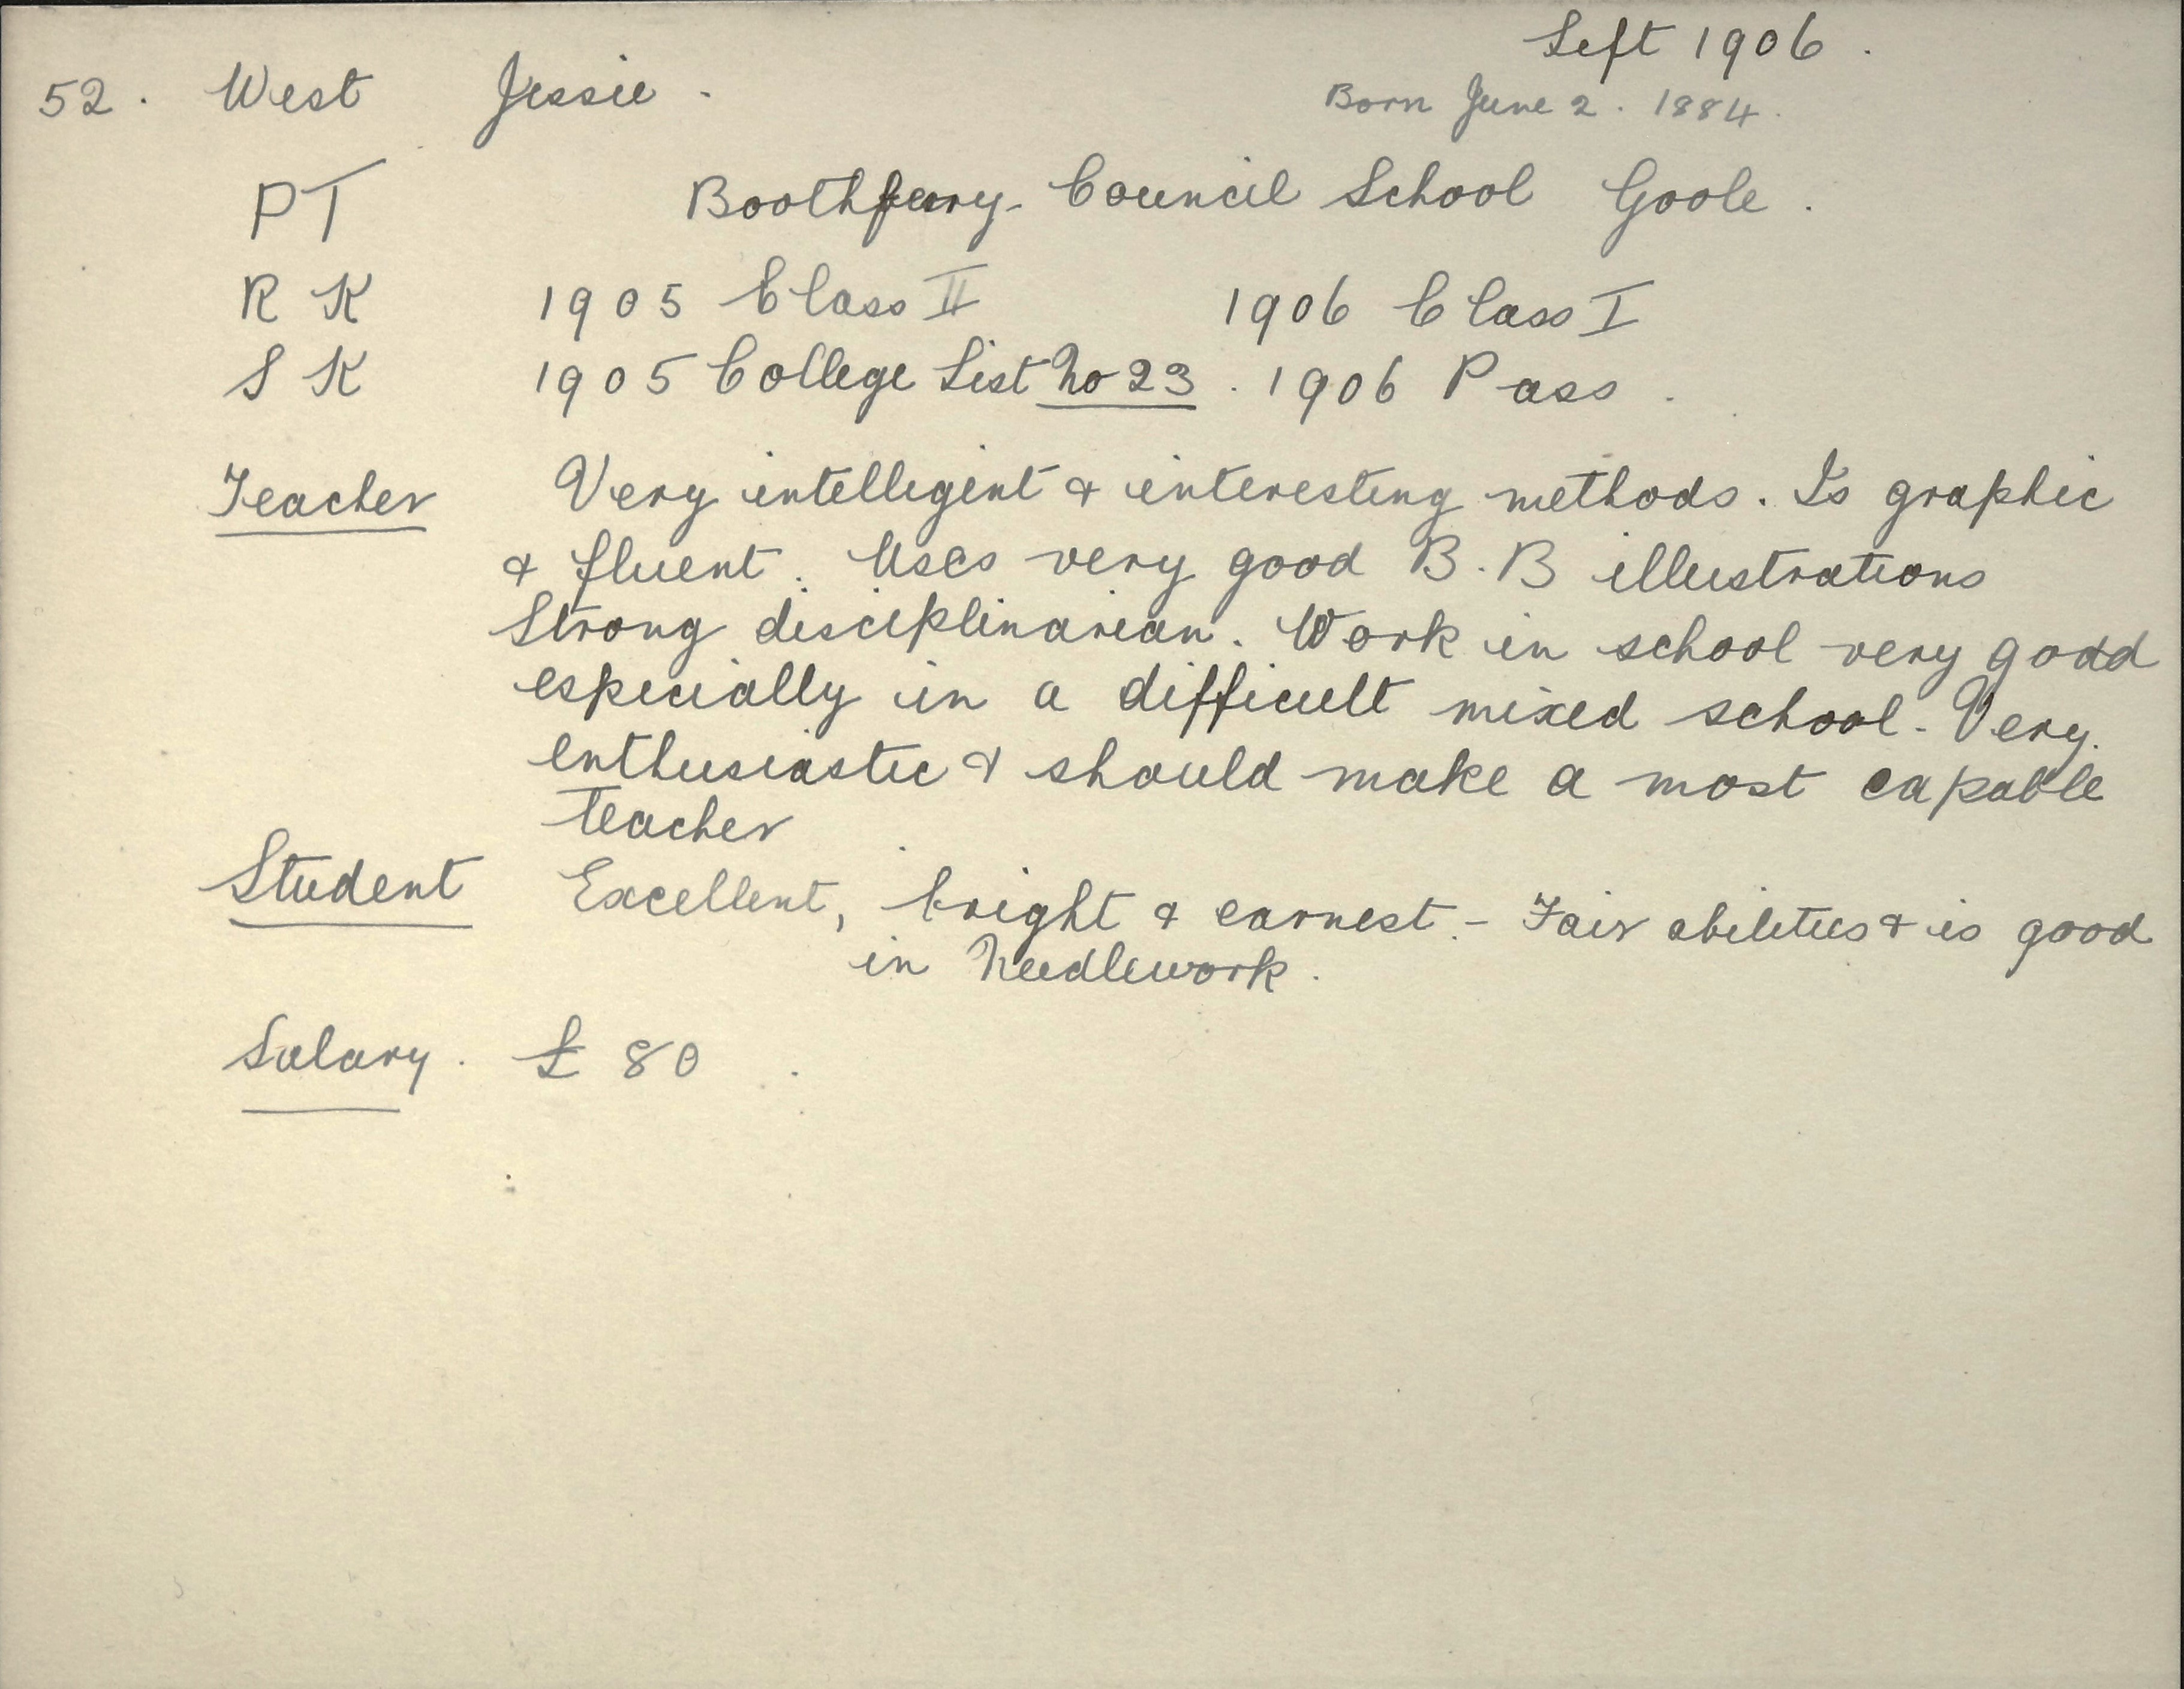 Left 1906.
52. West Jessie.
Born June 2. 1884.
PT Boothferry Council School Goole.
R K 1905 Class II 1906 Class I
S K 1905 College List No 23. 1906 Pass.
Teacher Very intelligent & interesting methods. Is graphic
& fluent. Uses very good B.B illustrations
Strong disciplinarian. Work in school very good
especially in a difficult mixed school. Very
enthusiastic & should make a most capable
teacher
Student Excellent, bright & earnest. - Fair abilities & is good
in Needlework.
Salary. £80.